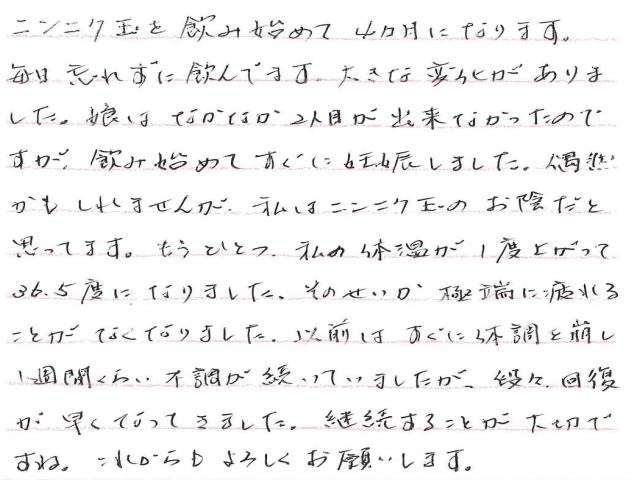 ニンニク玉を飲み始めて4カ月になります。
毎日忘れずに飲んでます。大きな変化がありま
した。娘はなかなか2人目が出来なかったので
すが、飲み始めてすぐに妊娠しました。偶然
かもしれませんが、私はニンニク玉のお陰だと
思ってます。もうひとつ、私の体温が1度上がって
36.5度になりました。そのせいか極端に疲れる
ことがなくなりました。以前はすぐに体調を崩し
1週間くらい不調が続いていましたが、段々、回復
が早くなってきました。継続することが大切で
すね。これからもよろしくお願いします。